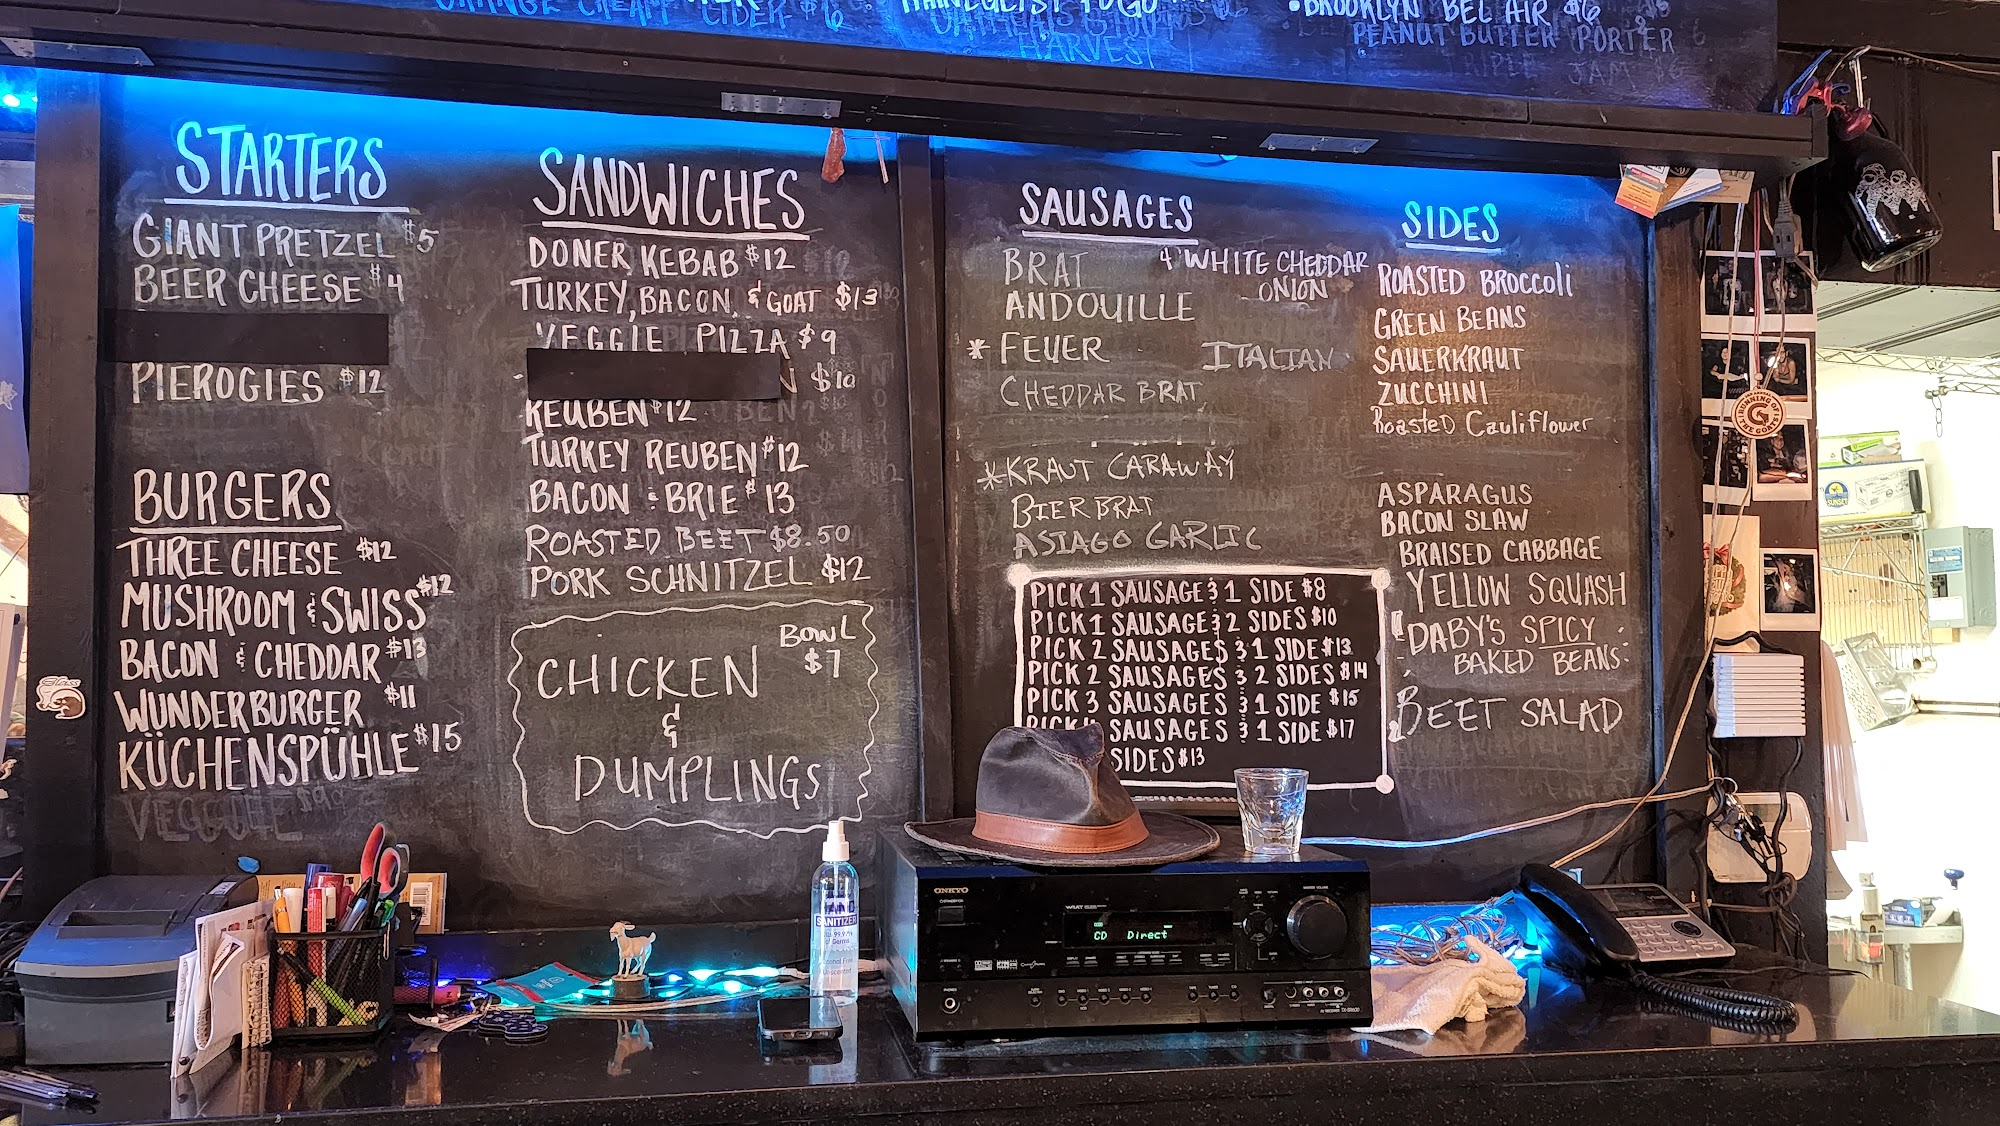 ORANGE CREAM CIDER $6
BROOKLYN BEL AIR $6
PEANUT BUTTER PORTER
HARVEST
STARTERS
GIANT PRETZEL $5
BEER CHEESE $4
PIEROGIES $12
BURGERS
THREE CHEESE $12
MUSHROOM & SWISS $12
BACON & CHEDDAR $13
WUNDERBURGER $11
KÜCHENSPÜHLE $15
VEGGIE $9
SANDWICHES
DONER KEBAB $12
TURKEY, BACON, & GOAT $13
VEGGIE PIZZA $9
N $10
REUBEN $12
TURKEY REUBEN $12
BACON & BRIE $13
ROASTED BEET $8.50
PORK SCHNITZEL $12
CHICKEN
&
DUMPLINGS
BOWL
$7
SAUSAGES
BRAT
ANDOUILLE
* FEUER
CHEDDAR BRAT
* KRAUT CARAWAY
BIER BRAT
ASIAGO GARLIC
WHITE CHEDDAR
ONION
ITALIAN
PICK 1 SAUSAGE & 1 SIDE $8
PICK 1 SAUSAGE & 2 SIDES $10
PICK 2 SAUSAGES & 1 SIDE $13
PICK 2 SAUSAGES & 2 SIDES $14
PICK 3 SAUSAGES & 1 SIDE $15
PICK 4 SAUSAGES & 1 SIDE $17
SIDES $13
SIDES
ROASTED BROCCOLI
GREEN BEANS
SAUERKRAUT
ZUCCHINI
Roasted Cauliflower
ASPARAGUS
BACON SLAW
BRAISED CABBAGE
YELLOW SQUASH
DABY'S SPICY
BAKED BEANS
BEET SALAD
RUNNING OF
G
THE GOATS
SANITIZER
ONKYO
CD Direct